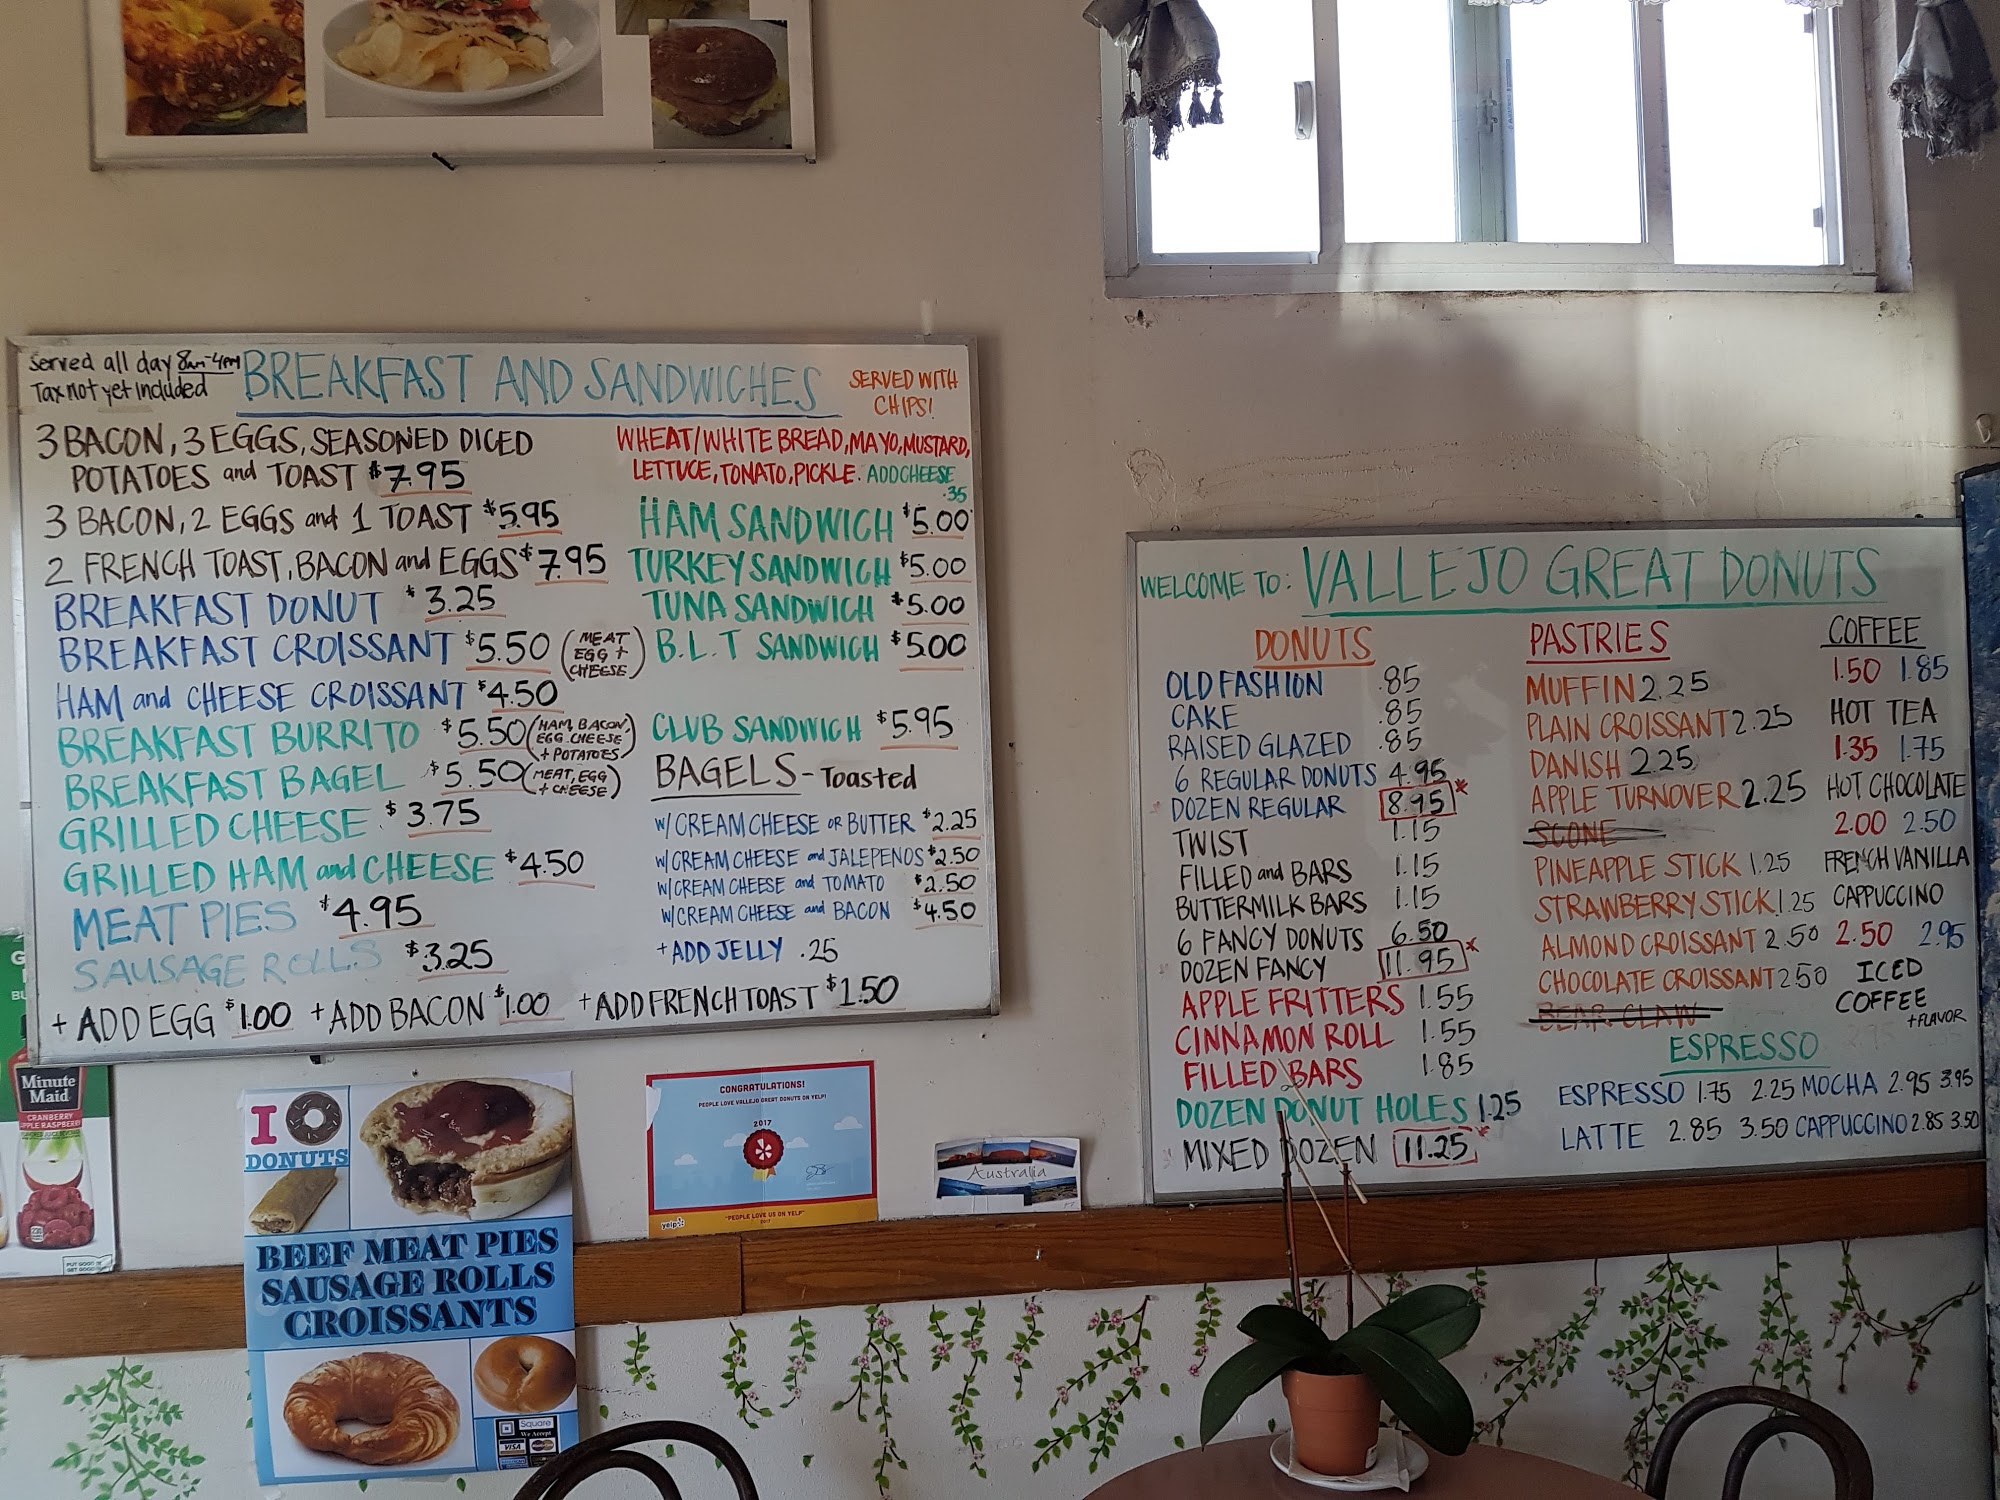 Served all day 8am-4pm
Tax not yet included
BREAKFAST AND SANDWICHES
SERVED WITH
CHIPS!
3 BACON, 3 EGGS, SEASONED DICED
POTATOES and TOAST $7.95
3 BACON, 2 EGGS and 1 TOAST $5.95
2 FRENCH TOAST, BACON and EGGS $7.95
BREAKFAST DONUT $3.25
BREAKFAST CROISSANT $5.50 (MEAT
EGG +
CHEESE)
HAM and CHEESE CROISSANT $4.50
BREAKFAST BURRITO $5.50 (HAM, BACON,
EGG CHEESE
+ POTATOES)
BREAKFAST BAGEL $5.50 (MEAT, EGG
+ CHEESE)
GRILLED CHEESE $3.75
GRILLED HAM and CHEESE $4.50
MEAT PIES $4.95
SAUSAGE ROLLS $3.25
+ ADD EGG $1.00 + ADD BACON $1.00 + ADD FRENCH TOAST $1.50
WHEAT/WHITE BREAD, MAYO, MUSTARD,
LETTUCE, TONATO, PICKLE. ADD CHEESE
.35
HAM SANDWICH $5.00
TURKEY SANDWICH $5.00
TUNA SANDWICH $5.00
B.L.T SANDWICH $5.00
CLUB SANDWICH $5.95
BAGELS - Toasted
W/CREAM CHEESE OR BUTTER $2.25
W/CREAM CHEESE and JALEPENOS $2.50
W/CREAM CHEESE and TOMATO $2.50
W/CREAM CHEESE and BACON $4.50
+ ADD JELLY .25
WELCOME TO: VALLEJO GREAT DONUTS
DONUTS
OLD FASHION .85
CAKE .85
RAISED GLAZED .85
6 REGULAR DONUTS 4.95
DOZEN REGULAR 8.95*
TWIST 1.15
FILLED and BARS 1.15
BUTTERMILK BARS 1.15
6 FANCY DONUTS 6.50
DOZEN FANCY 11.95*
APPLE FRITTERS 1.55
CINNAMON ROLL 1.55
FILLED BARS 1.85
DOZEN DONUT HOLES 1.25
MIXED DOZEN 11.25*
PASTRIES
MUFFIN 2.25
PLAIN CROISSANT 2.25
DANISH 2.25
APPLE TURNOVER 2.25
SCONE
PINEAPPLE STICK 1.25
STRAWBERRY STICK 1.25
ALMOND CROISSANT 2.50
CHOCOLATE CROISSANT 2.50
BEAR CLAW
COFFEE
1.50 1.85
HOT TEA
1.35 1.75
HOT CHOCOLATE
2.00 2.50
FRENCH VANILLA
CAPPUCCINO
2.50 2.95
ICED
COFFEE
+ FLAVOR
ESPRESSO
ESPRESSO 1.75 2.25 MOCHA 2.95 3.95
LATTE 2.85 3.50 CAPPUCCINO 2.85 3.50
Minute
Maid
CRANBERRY
APPLE RASPBERRY
I
DONUTS
BEEF MEAT PIES
SAUSAGE ROLLS
CROISSANTS
Square
We Accept
VISA
CONGRATULATIONS!
PEOPLE LOVE VALLEJO GREAT DONUTS ON YELP!
2017
yelp
"PEOPLE LOVE US ON YELP"
2017
Australia